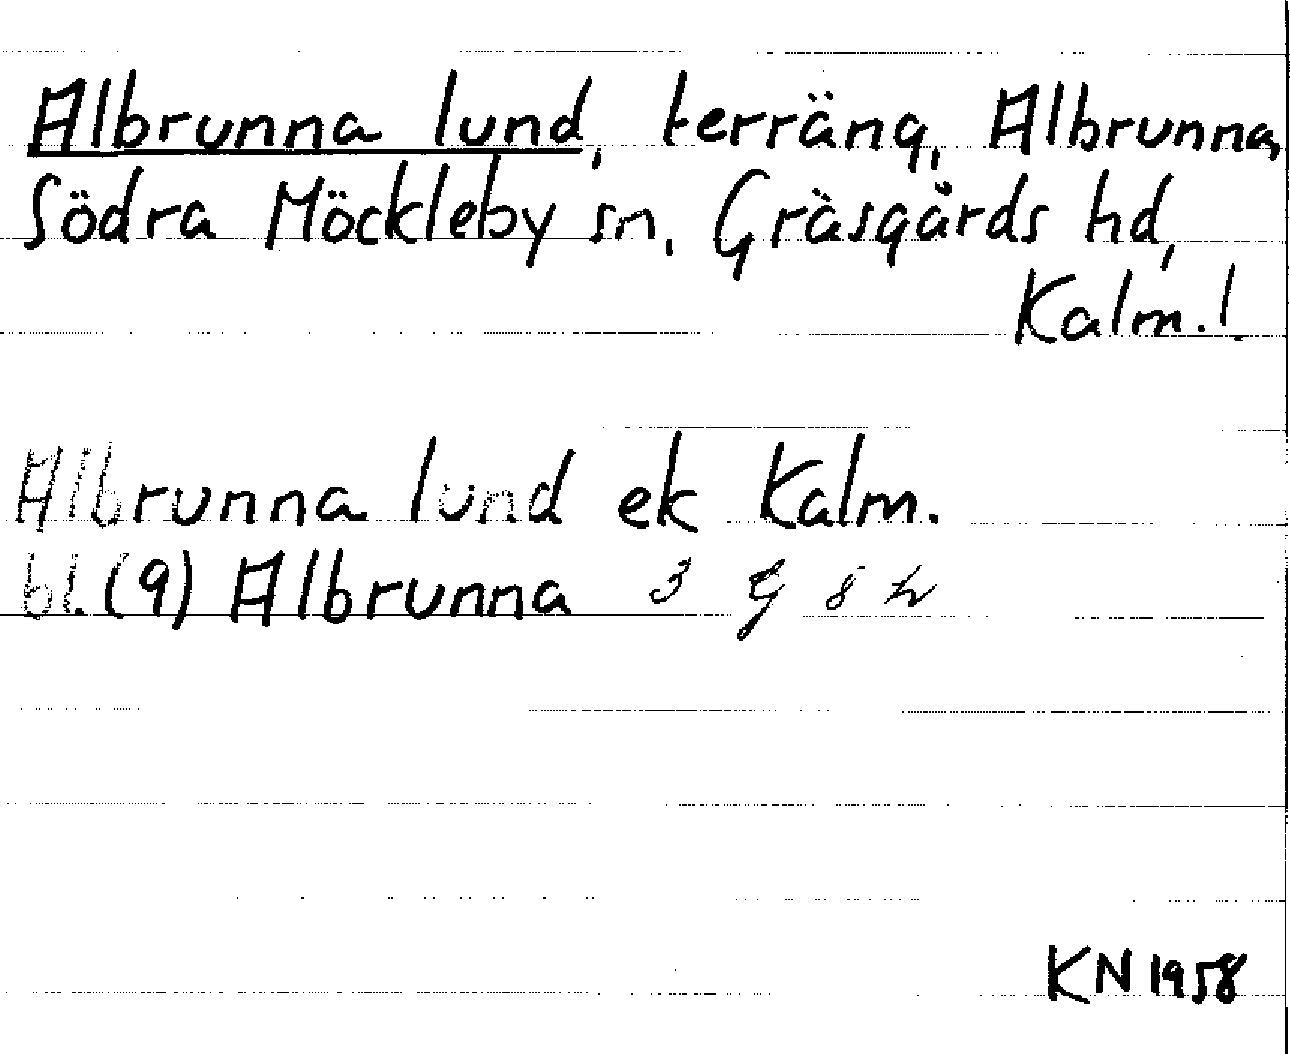 Albrunna lund, terräng, Albrunna,
Södra Möckleby sn, Gräsgårds hd,
Kalm.!
Albrunna lund ek Kalm.
bl.(9) Albrunna 3 G 8 h
KN 1958